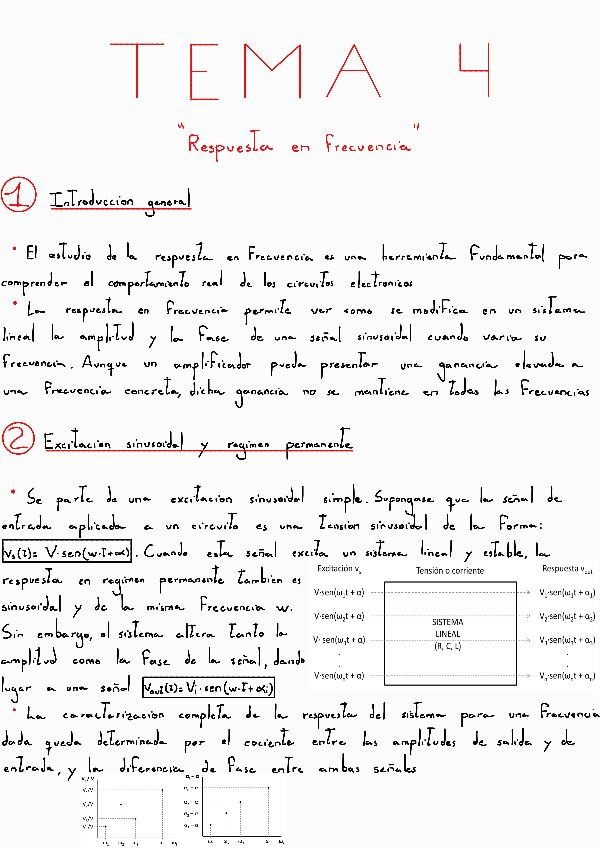 TEMA 4
"Respuesta en frecuencia"
1 Introduccion general
• El estudio de la respuesta en frecuencia es una herramienta fundamental para
comprender el comportamiento real de los circuitos electronicos
• La respuesta en frecuencia permite ver como se modifica en un sistema
lineal la amplitud y la fase de una señal sinusoidal cuando varia su
frecuencia. Aunque un amplificador pueda presentar una ganancia elevada a
una frecuencia concreta, dicha ganancia no se mantiene en todas las frecuencias
2 Excitacion sinusoidal y regimen permanente
• Se parte de una excitacion sinusoidal simple. Supongase que la señal de
entrada aplicada a un circuito es una tension sinusoidal de la forma:
Vs(t)= V·sen(w·t+α). Cuando esta señal excita un sistema lineal y estable, la
respuesta en regimen permanente tambien es
sinusoidal y de la misma frecuencia w.
Sin embargo, el sistema altera tanto la
amplitud como la fase de la señal, dando
lugar a una señal Vout(t)= Vi·sen(w·t+αi)
Excitación vs Tensión o corriente Respuesta vout
V·sen(ω1t + α) V1·sen(ω1t + α1)
V·sen(ω2t + α) V2·sen(ω2t + α2)
SISTEMA
V·sen(ω3t + α) LINEAL V3·sen(ω3t + α3)
(R, C, L)
V·sen(ωnt + α) Vn·sen(ωnt + αn)
• La caracterizacion completa de la respuesta del sistema para una frecuencia
dada queda determinada por el cociente entre las amplitudes de salida y de
entrada, y la diferencia de fase entre ambas señales